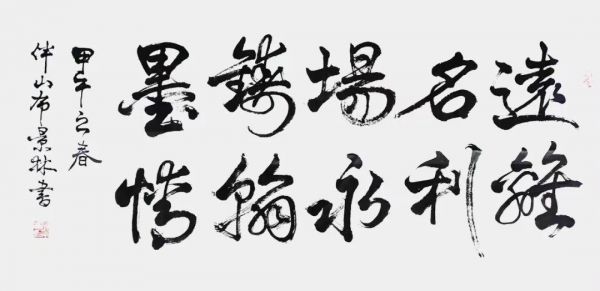 遠離
名利
場永
鑄翰
墨情
甲午之春
伴山布景林書